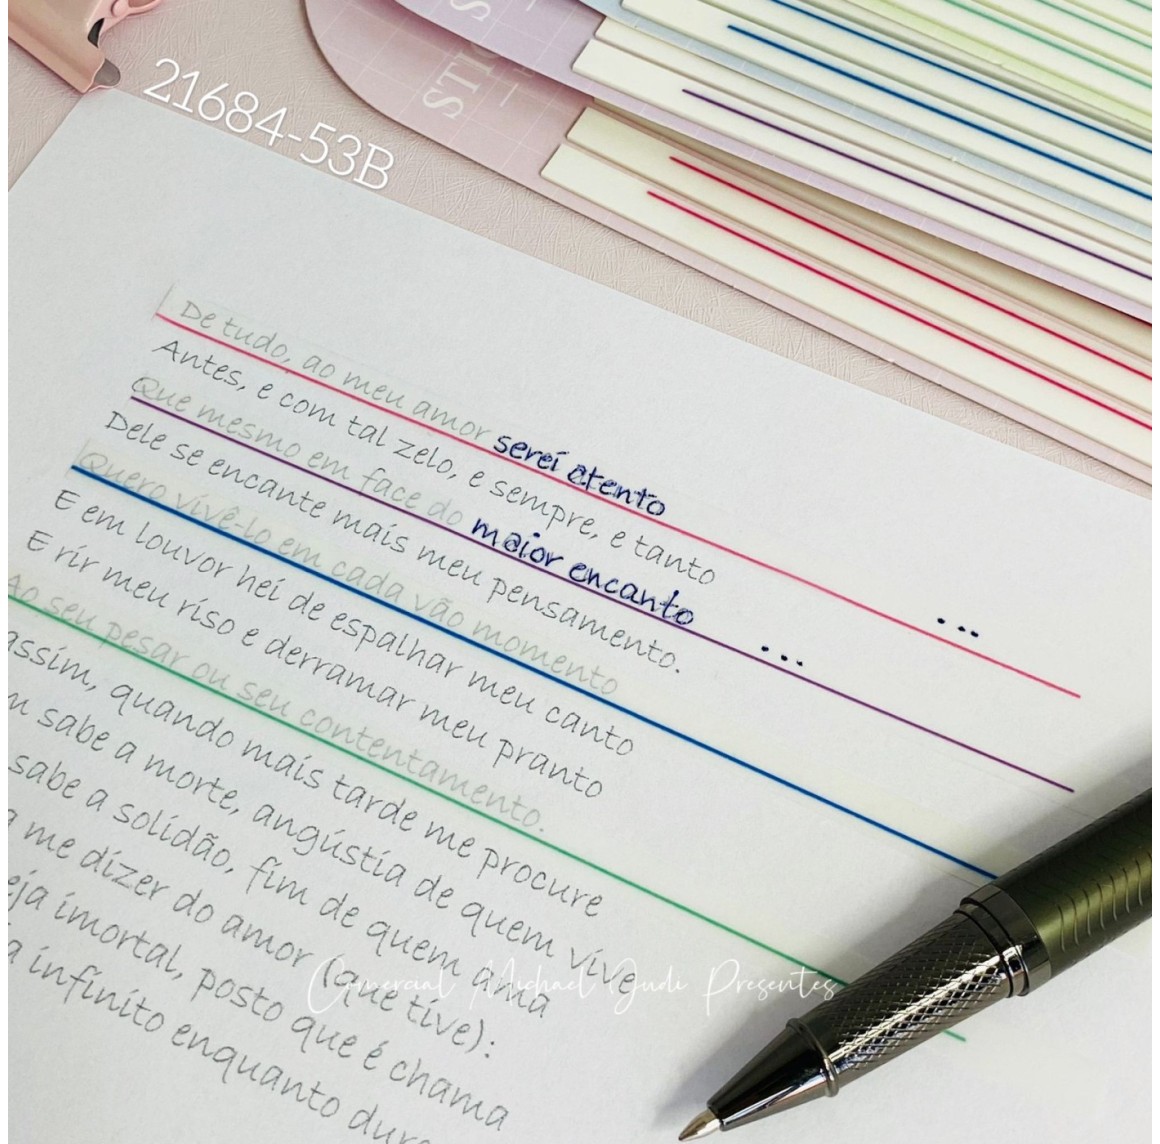 STIC
21684-53B
De tudo, ao meu amor serei atento
Antes, e com tal zelo, e sempre, e tanto
Que mesmo em face do maior encanto
Dele se encante mais meu pensamento.
Quero vivê-lo em cada vão momento
E em louvor hei de espalhar meu canto
E rir meu riso e derramar meu pranto
Ao seu pesar ou seu contentamento.
assim, quando mais tarde me procure
m sabe a morte, angústia de quem vive
sabe a solidão, fim de quem ama
a me dizer do amor (que tive):
eja imortal, posto que é chama
a infinito enquanto dure
...
...
Comercial Michael Gudi Presentes